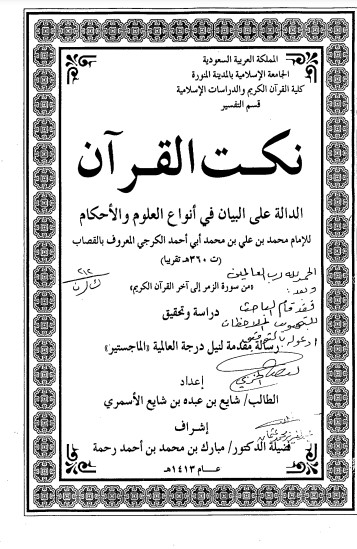 المملكة العربية السعودية
الجامعة الإسلامية بالمدينة المنورة
كلية القرآن الكريم والدراسات الإسلامية
قسم التفسير
نكت القرآن
الدالة على البيان في أنواع العلوم والأحكام
للإمام محمد بن علي بن محمد أبي أحمد الكرجي المعروف بالقصاب
(ت ٣٦٠هـ تقريبا)
الحمد لله رب العالمين
«من سورة الزمر إلى آخر القرآن الكريم»
وبعد:
فقد قام الباحث
دراسة وتحقيق
رسالة مقدمة لنيل درجة العالمية «الماجستير»
إعداد
الطالب/ شايع بن عبده بن شايع الأسمري
إشراف
فضيلة الدكتور/ مبارك بن محمد بن أحمد رحمة
عام ١٤١٣هـ